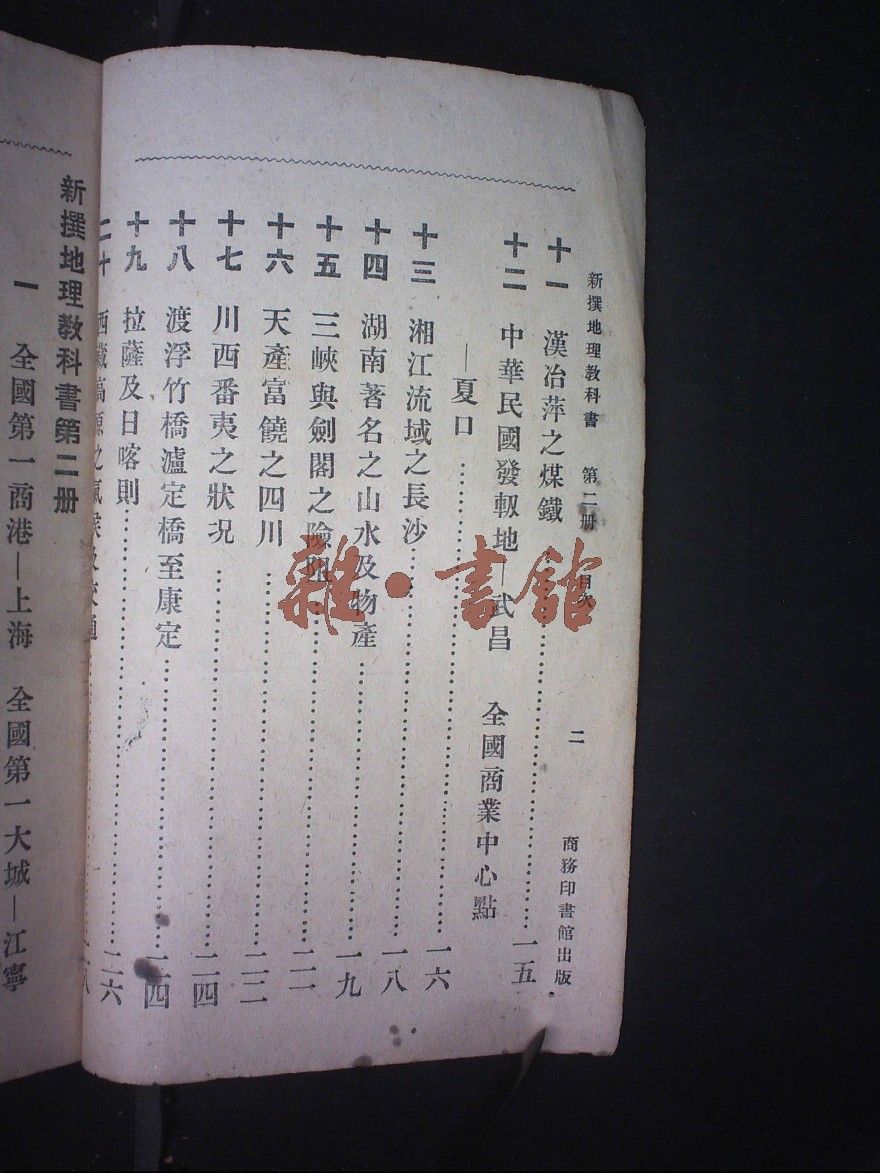 新撰地理教科書 第二册 目次 二 商務印書館出版
十一 漢冶萍之煤鐵……一五
十二 中華民國發軔地—武昌 全國商業中心點
—夏口……一六
十三 湘江流域之長沙……一八
十四 湖南著名之山水及物產……一九
十五 三峽與劍閣之險阻……二一
十六 天產富饒之四川……二二
十七 川西番夷之狀況……二四
十八 渡浮竹橋瀘定橋至康定……二四
十九 拉薩及日喀則……二六
二十 西藏高原之氣候及交通……二八
新撰地理教科書第二册
一 全國第一商港—上海 全國第一大城—江寧
雜·書館